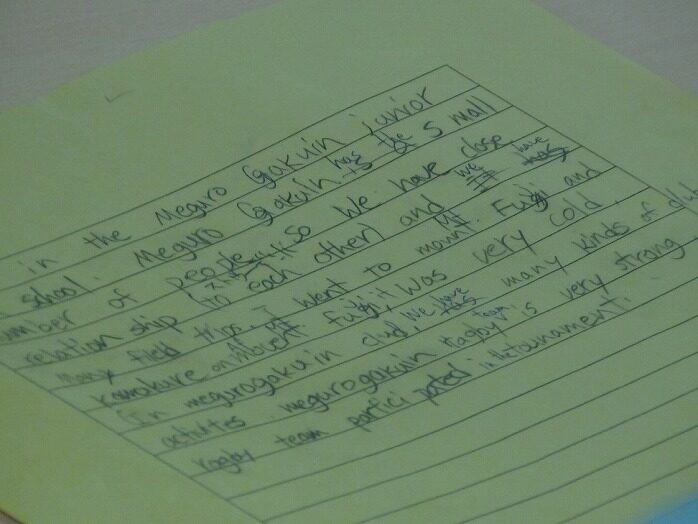 in the Meguro Gakuin junior
shool. Meguro Gakuin has the a small
umber of people so We have close
relation ship to each other) and we have
Many field trips. I went to mount. Fuji and
Kamakure on Mt Fuji, it was very cold.
In megurogakuin club, we have many kinds of club
activites. megurogakuin is very strong
rogby team partici pated in the tournament.